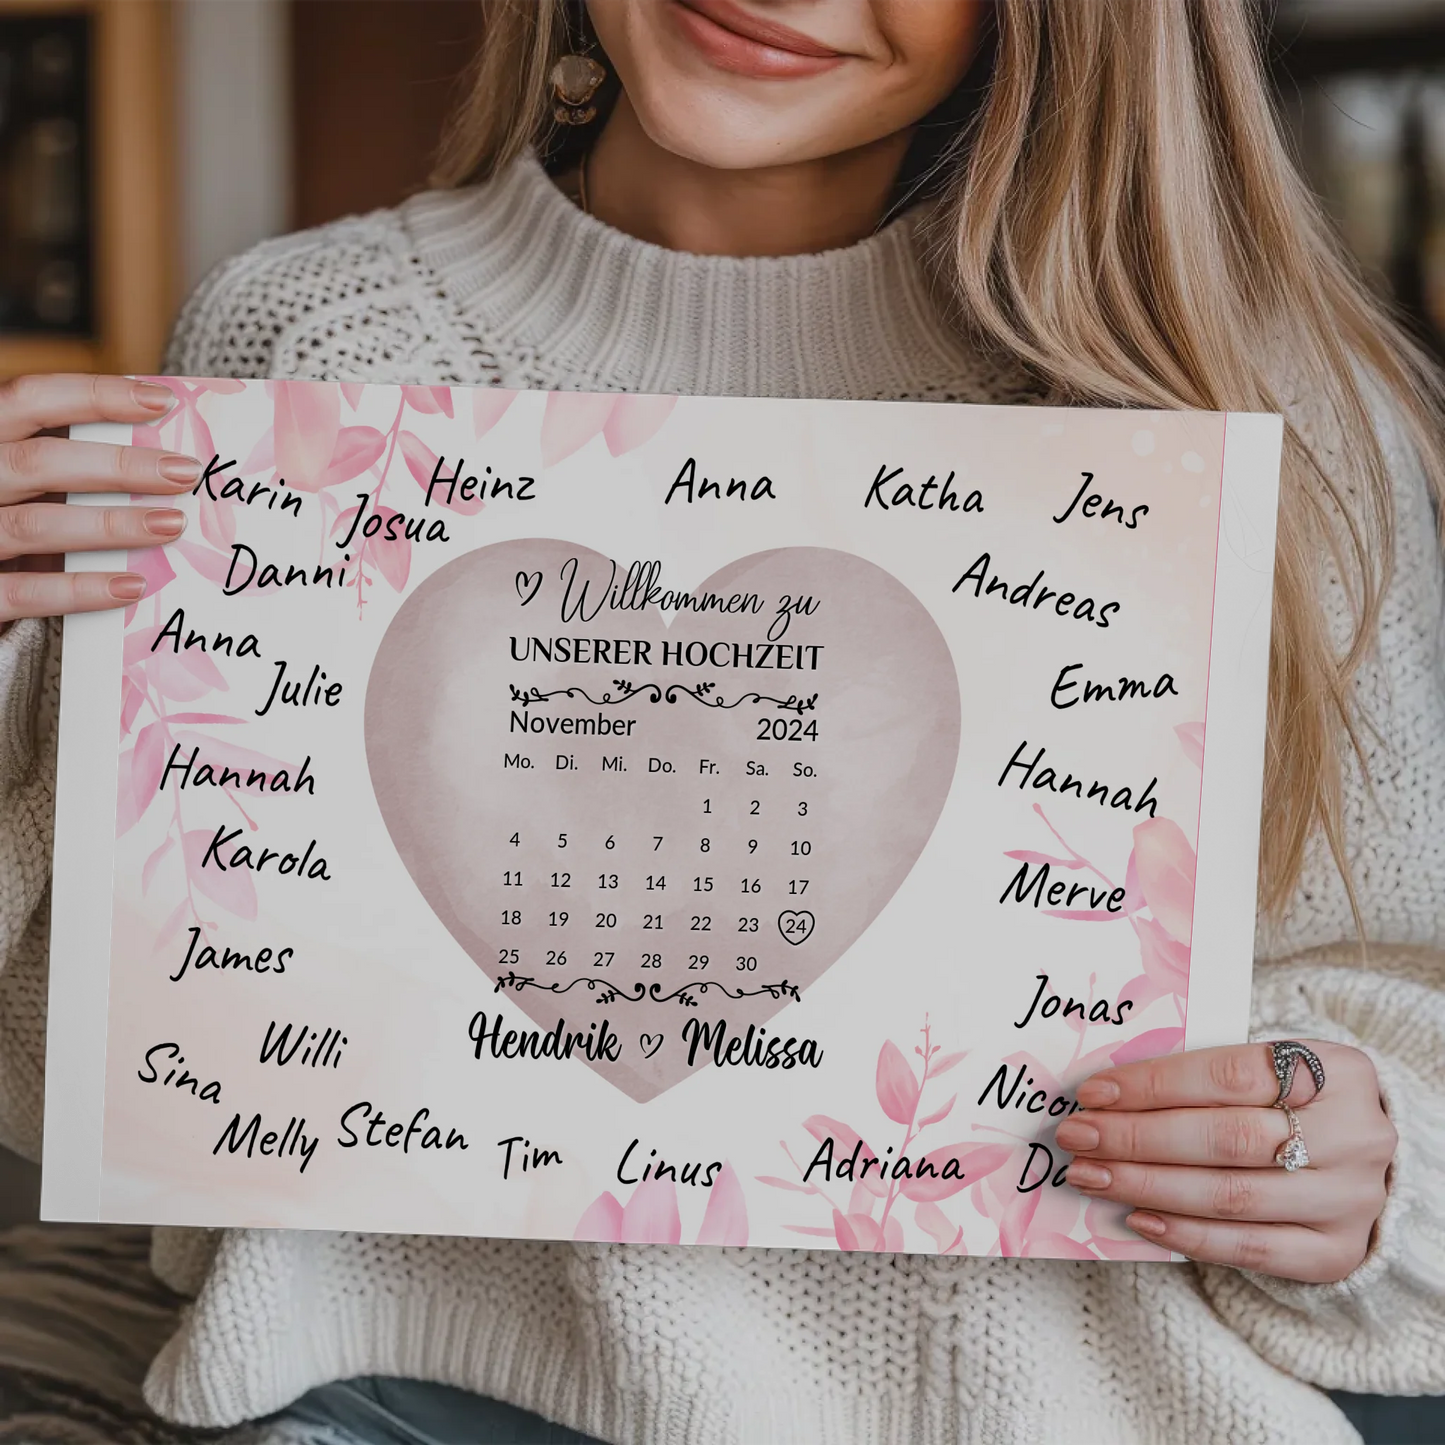 Karin
Heinz
Anna
Katha
Jens
Josua
Danni
Andreas
Anna
Julie
Emma
Hannah
Hannah
Karola
Merve
James
Jonas
Willi
Sina
Melly
Stefan
Tim
Linus
Adriana
Willkommen zu
UNSERER HOCHZEIT
November 2024
Mo. Di. Mi. Do. Fr. Sa. So.
1 2 3
4 5 6 7 8 9 10
11 12 13 14 15 16 17
18 19 20 21 22 23 24
25 26 27 28 29 30
Hendrik Melissa